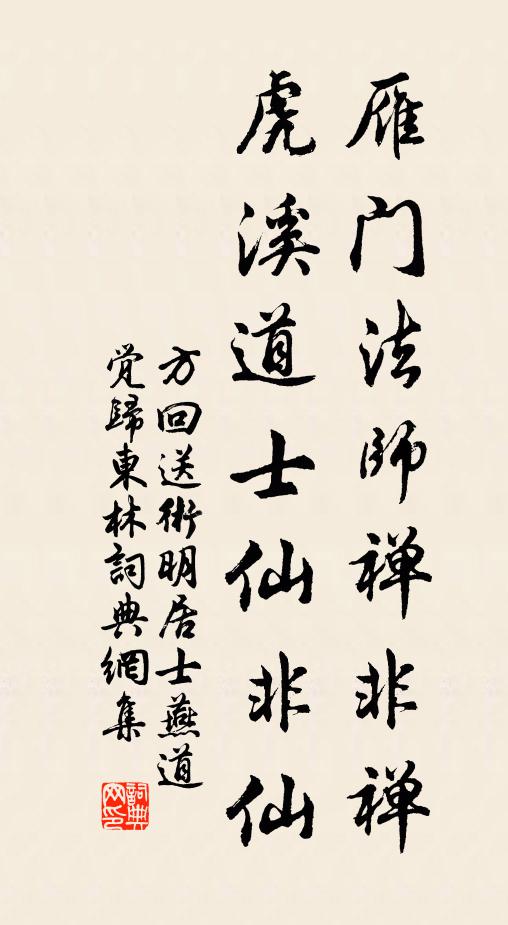 雁门法師禅非禅
虎溪道士仙非仙
方回送術明居士燕道
覚歸東林詞典網集
詞典
网印